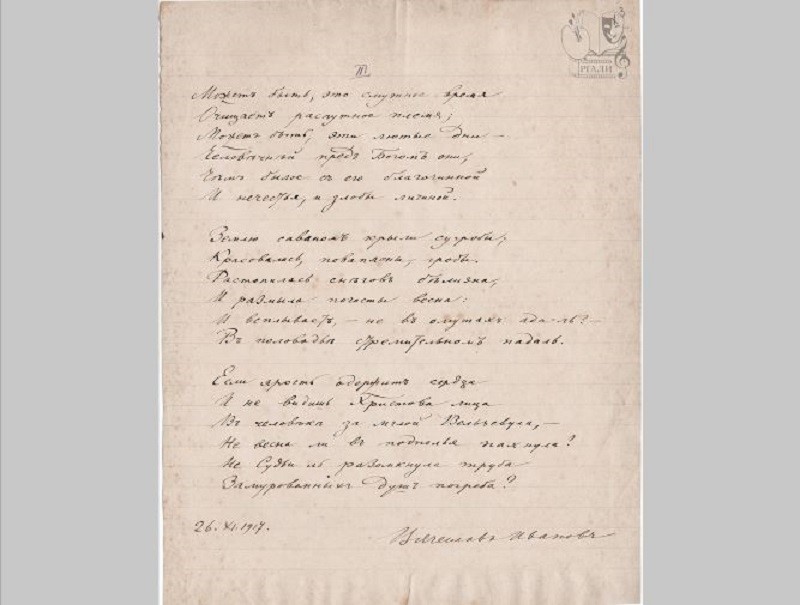 РГАЛИ
III
Можетъ быть, это смутное время
Очищаетъ распутное племя;
Можетъ быть, эти лютые дни —
предъ Богомъ они,
Чѣмъ былое съ его благочинной
И нечестья, и злобы личиной.
Землю саваномъ крыли сугробы;
Красовались, поваплены, гробы.
Растопилась снѣговъ бѣлизна,
И размыла погосты весна:
И всплываетъ, — не въ омутахъ ада-ль? —
Въ половодьи стремительномъ падаль.
Если ярость одержитъ сердца
И не видишь Христова лица
Въ человѣкѣ за мглой Вельзевула, —
Не весна ли въ подполья пахнула?
Не Суда ль разомкнула труба
Замурованныхъ душъ погреба?
26. XI. 1917.
Вячеславъ Ивановъ